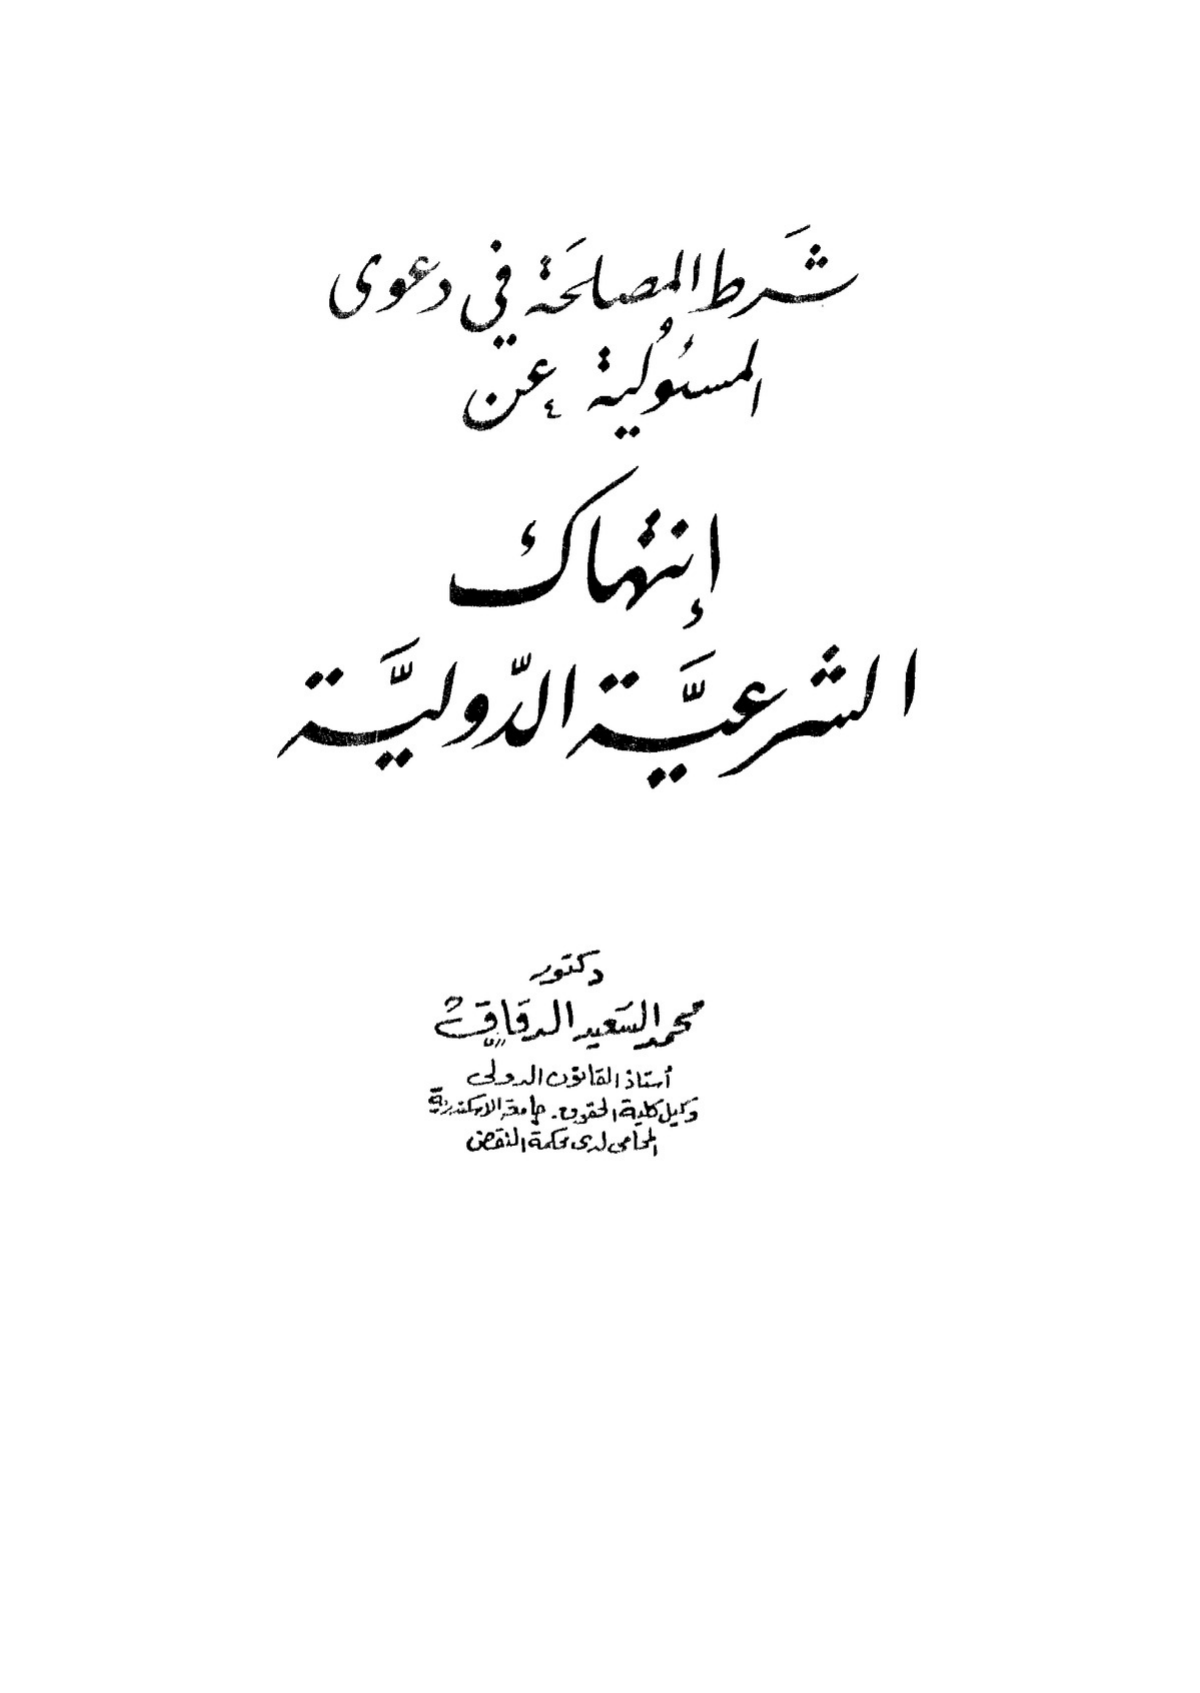 شَرط المصلحَة في دعوى
المسئولية عن
إنتهاك
الشرعيَّة الدّوليَّة
دكتور
محمد السَعيد الدقاق
أستاذ القانون الدولى
وكيل كلية الحقوق - جامعة الاسكندرية
المحامى لدى محكمة النقض